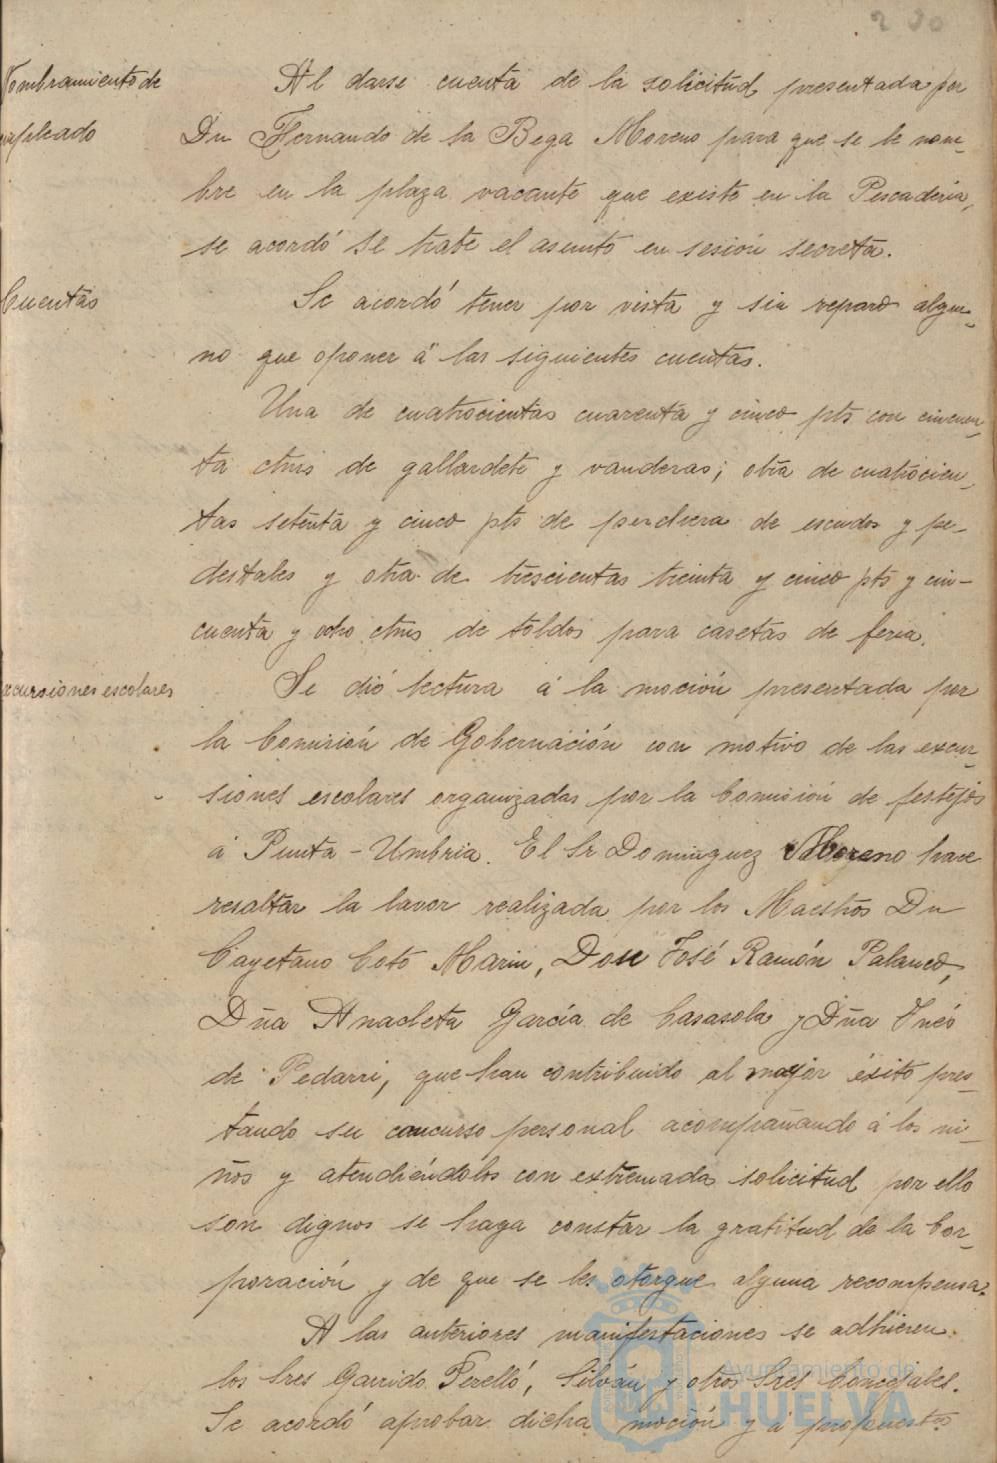 230
Nombramiento de
empleado
Al darse cuenta de la solicitud presentada por
Dn Fernando de la Bega Moreno para que se le nom-
bre en la plaza vacante que existe en la Pescaderia,
se acordó se trate el asunto en sesión secreta.
Cuentas
Se acordó tener por vista y sin reparo algu-
no que oponer á las siguientes cuentas.
Una de cuatrocientas cuarenta y cinco pts con cincuen-
ta ctms de gallardete y vanderas; otra de cuatrocien-
tas setenta y cinco pts de perchera de escudos y pe-
destales y otra de trescientas treinta y cinco pts y cin-
cuenta y ocho ctms de toldos para casetas de feria.
Excursiones escolares
Se dió lectura á la moción presentada por
la Comisión de Gobernación con motivo de las excur-
siones escolares organizadas por la Comisión de festejos
á Punta-Umbria. El Sr Dominguez Moreno hace
resaltar la lavor realizada por los Maestros Dn
Cayetano Coto Marin, Don José Ramón Palanco,
Dña Anacleta García de Casasola y Dña
de Pedarri, que han contribuido al mayor éxito pres-
tando su concurso personal acompañando á los ni-
ños y atendiéndolos con extremada solicitud por ello
son dignos se haga constar la gratitud de la Cor-
poración y de que se les otorgue alguna recompensa.
A las anteriores manifestaciones se adhieren
los Sres Garrido Perelló, Silván y otros Sres Concejales.
Se acordó aprobar dicha moción y á propuesta
Ayuntamiento de
HUELVA